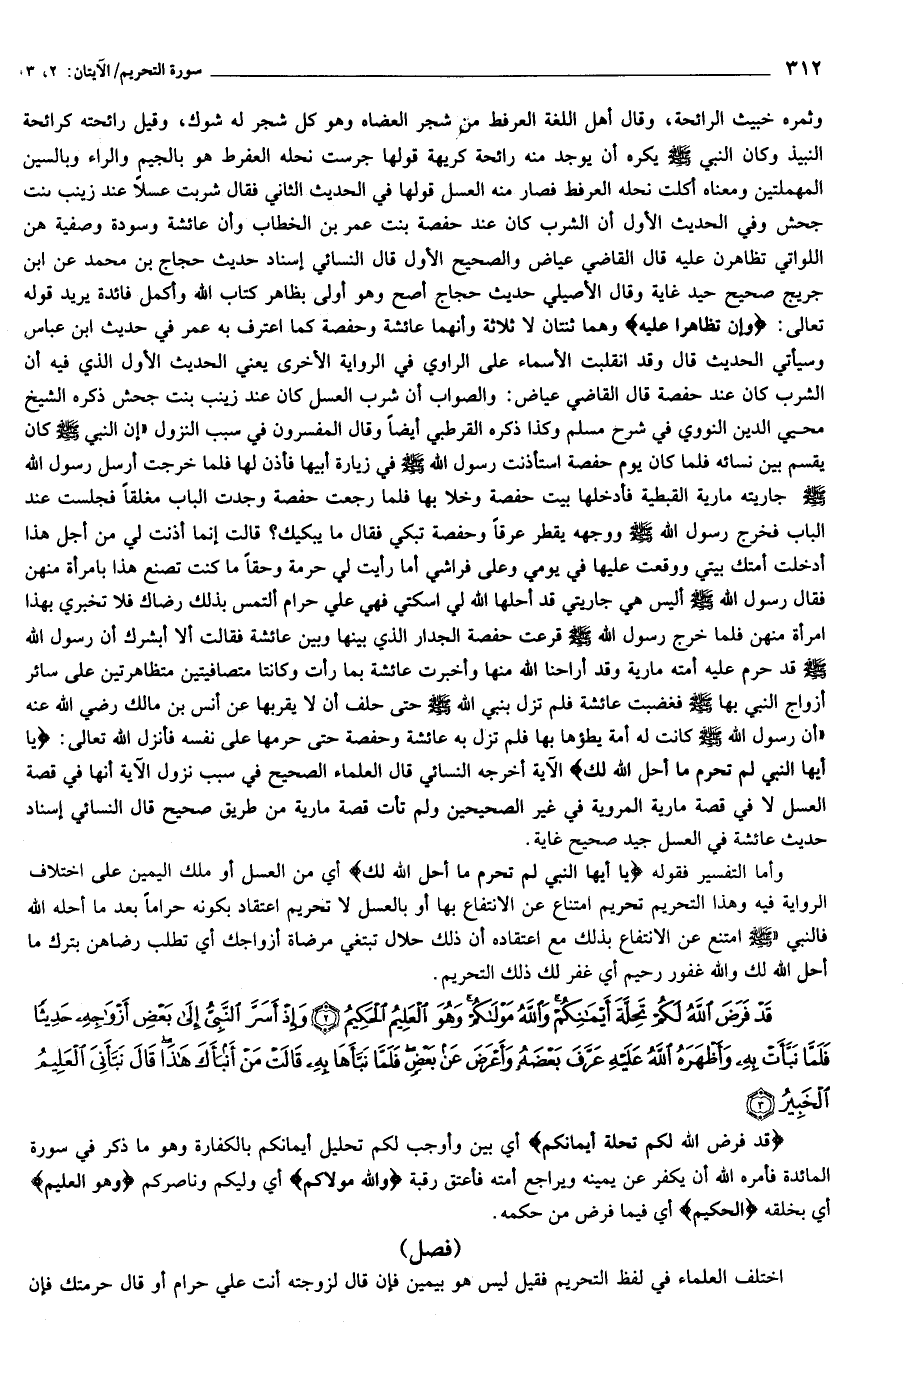 ٣١٢ سورة التحريم/ الآيتان: ٢، ٣
وثمره خبيث الرائحة، وقال أهل اللغة العرفط من شجر العضاه وهو كل شجر له شوك، وقيل رائحته كرائحة
النبيذ وكان النبي ﷺ يكره أن يوجد منه رائحة كريهة قولها جرست نحله العفرط هو بالجيم والراء وبالسين
المهملتين ومعناه أكلت نحله العرفط فصار منه العسل قولها في الحديث الثاني فقال شربت عسلاً عند زينب بنت
جحش وفي الحديث الأول أن الشرب كان عند حفصة بنت عمر بن الخطاب وأن عائشة وسودة وصفية هن
اللواتي تظاهرن عليه قال القاضي عياض والصحيح الأول قال النسائي إسناد حديث حجاج بن محمد عن ابن
جريج صحيح حيد غاية وقال الأصيلي حديث حجاج أصح وهو أولى بظاهر كتاب الله وأكمل فائدة يريد قوله
تعالى: ﴿وإن تظاهرا عليه﴾ وهما ثنتان لا ثلاثة وأنهما عائشة وحفصة كما اعترف به عمر في حديث ابن عباس
وسيأتي الحديث قال وقد انقلبت الأسماء على الراوي في الرواية الأخرى يعني الحديث الأول الذي فيه أن
الشرب كان عند حفصة قال القاضي عياض: والصواب أن شرب العسل كان عند زينب بنت جحش ذكره الشيخ
محيي الدين النووي في شرح مسلم وكذا ذكره القرطبي أيضاً وقال المفسرون في سبب النزول «إن النبي ﷺ كان
يقسم بين نسائه فلما كان يوم حفصة استأذنت رسول الله ﷺ في زيارة أبيها فأذن لها فلما خرجت أرسل رسول الله
ﷺ جاريته مارية القبطية فأدخلها بيت حفصة وخلا بها فلما رجعت حفصة وجدت الباب مغلقاً فجلست عند
الباب فخرج رسول الله ﷺ ووجهه يقطر عرقاً وحفصة تبكي فقال ما يبكيك؟ قالت إنما أذنت لي من أجل هذا
أدخلت أمتك بيتي ووقعت عليها في يومي وعلى فراشي أما رأيت لي حرمة وحقاً ما كنت تصنع هذا بامرأة منهن
فقال رسول الله ﷺ أليس هي جاريتي قد أحلها الله لي اسكتي فهي علي حرام ألتمس بذلك رضاك فلا تخبري بهذا
امرأة منهن فلما خرج رسول الله ﷺ قرعت حفصة الجدار الذي بينها وبين عائشة فقالت ألا أبشرك أن رسول الله
ﷺ قد حرم عليه أمته مارية وقد أراحنا الله منها وأخبرت عائشة بما رأت وكانتا متصافيتين متظاهرتين على سائر
أزواج النبي بها ﷺ فغضبت عائشة فلم تزل بنبي الله ﷺ حتى حلف أن لا يقربها عن أنس بن مالك رضي الله عنه
«أن رسول الله ﷺ كانت له أمة يطؤها بها فلم تزل به عائشة وحفصة حتى حرمها على نفسه فأنزل الله تعالى: ﴿يا
أيها النبي لم تحرم ما أحل الله لك﴾ الآية أخرجه النسائي قال العلماء الصحيح في سبب نزول الآية أنها في قصة
العسل لا في قصة مارية المروية في غير الصحيحين ولم تأت قصة مارية من طريق صحيح قال النسائي إسناد
حديث عائشة في العسل جيد صحيح غاية.
وأما التفسير فقوله ﴿يا أيها النبي لم تحرم ما أحل الله لك﴾ أي من العسل أو ملك اليمين على اختلاف
الرواية فيه وهذا التحريم تحريم امتناع عن الانتفاع بها أو بالعسل لا تحريم اعتقاد بكونه حراماً بعد ما أحله الله
فالنبي «ﷺ امتنع عن الانتفاع بذلك مع اعتقاده أن ذلك حلال تبتغي مرضاة أزواجك أي تطلب رضاهن بترك ما
أحل الله لك والله غفور رحيم أي غفر لك ذلك التحريم.
قَدْ فَرَضَ ٱللَّهُ لَكُمْ تَحِلَّةَ أَيْمَٰنِكُمْ وَٱللَّهُ مَوْلَىٰكُمْ وَهُوَ ٱلْعَلِيمُ ٱلْحَكِيمُ ۝٢ وَإِذْ أَسَرَّ ٱلنَّبِىُّ إِلَىٰ بَعْضِ أَزْوَٰجِهِۦ حَدِيثًا
فَلَمَّا نَبَّأَتْ بِهِۦ وَأَظْهَرَهُ ٱللَّهُ عَلَيْهِ عَرَّفَ بَعْضَهُۥ وَأَعْرَضَ عَنۢ بَعْضٍ فَلَمَّا نَبَّأَهَا بِهِۦ قَالَتْ مَنْ أَنۢبَأَكَ هَٰذَا قَالَ نَبَّأَنِىَ ٱلْعَلِيمُ
ٱلْخَبِيرُ ۝٣
﴿قد فرض الله لكم تحلة أيمانكم﴾ أي بين وأوجب لكم تحليل أيمانكم بالكفارة وهو ما ذكر في سورة
المائدة فأمره الله أن يكفر عن يمينه ويراجع أمته فأعتق رقبة ﴿والله مولاكم﴾ أي وليكم وناصركم ﴿وهو العليم﴾
أي بخلقه ﴿الحكيم﴾ أي فيما فرض من حكمه.
(فصل)
اختلف العلماء في لفظ التحريم فقيل ليس هو بيمين فإن قال لزوجته أنت علي حرام أو قال حرمتك فإن